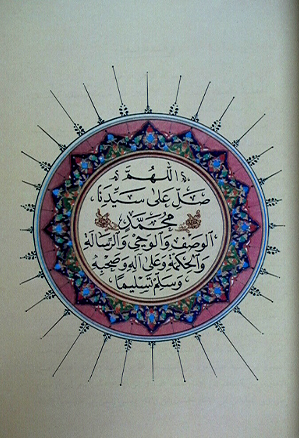 اللهم
صل على سيدنا
محمد
الوصف والوحي والرسالة
والحكمة وعلى آله وصحبه
وسلم تسليما